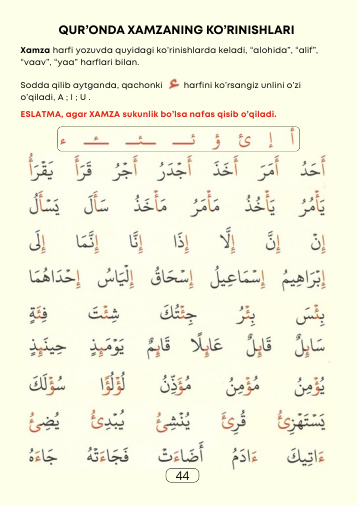 QUR’ONDA XAMZANING KO’RINISHLARI
Xamza harfi yozuvda quyidagi ko’rinishlarda keladi, “alohida”, “alif”,
“vaav”, “yaa” harflari bilan.
Sodda qilib aytganda, qachonki ء harfini ko’rsangiz unlini o’zi
o’qiladi, A ; I ; U .
ESLATMA, agar XAMZA sukunlik bo’lsa nafas qisib o’qiladi.
أ إ ئ ؤ ئـ ـئـ ـــء ـــ ء
أَحَدُ أَمَرَ أَخَذَ أَجْدَرُ أَجْرُ قَرَأَ يَقْرَأُ
يَأْمُرُ يَأْخُذُ مَأْمَرُ مَأْخَذُ سَأَلَ يَسْأَلُ
إِنْ إِنَّ إِلَّا إِذَا إِنَّا إِنَّمَا إِلَى
إِبْرَاهِيمُ إِسْمَاعِيلُ إِسْحَاقُ إِلْيَاسُ إِحْدَاهُمَا
بِئْسَ بِئْرُ جِئْتُكَ شِئْتَ فِئَةٍ
سَابِلٌ قَابِلٌ عَابِلًا قَابِمٌ يَوْمَئِذٍ حِينَئِذٍ
يُؤْمِنُ مُؤْمِنُ مُؤَذِّنُ لُؤْلُؤًا سُؤْلَكَ
يَسْتَهْزِئُ قُرِئَ يُنْشِئُ يُبْدِئُ يُضِئُ
ءَاتِيكَ ءَادَمُ أَضَاءَتْ فَجَاءَتْهُ جَاءَهُ
44